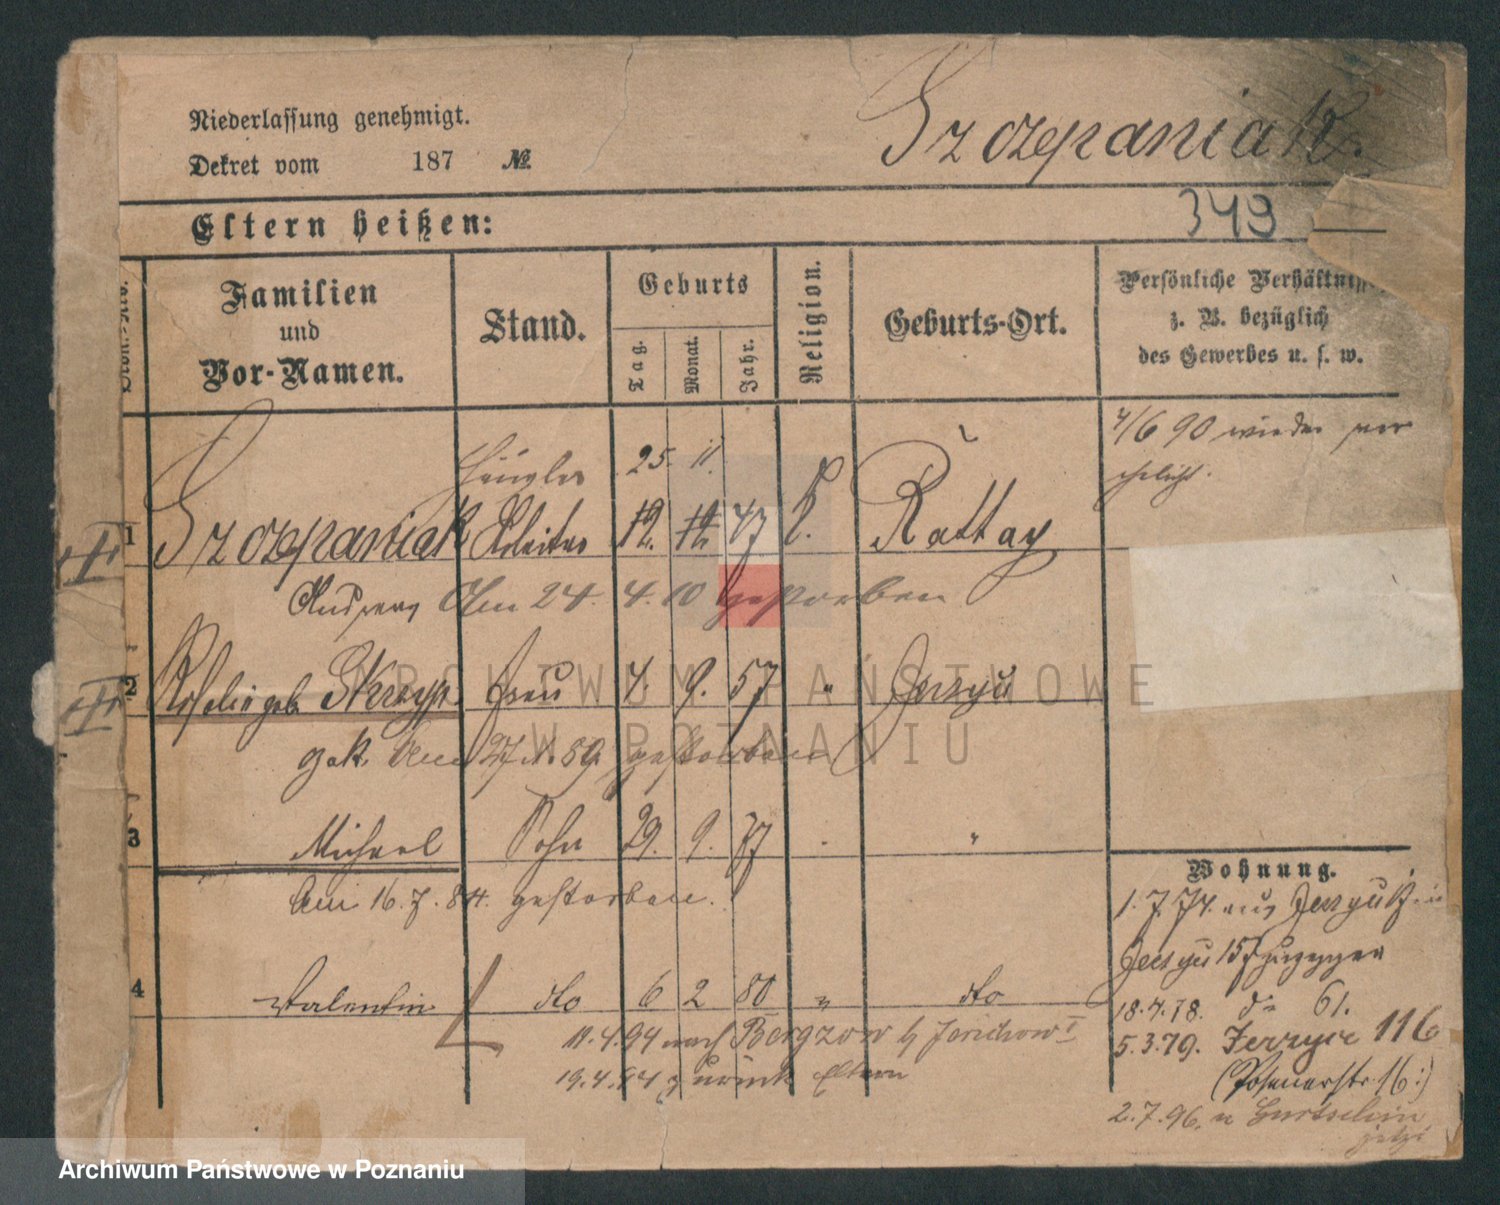 Niederlassung genehmigt.
Dekret vom 187 №
Szczepaniak.
349
Eltern heißen:
Familien
und
Vor-Namen.
Stand.
Geburts
Tag.
Monat.
Jahr.
Religion.
Geburts-Ort.
Persönliche Verhältnisse
z. B. bezüglich
des Gewerbes u. s. w.
4/6 90 wieder ver
ehelicht.
25. 11.
1 Szczepaniak Arbeiter 12. 12 47 k. Rattay
Andreas Am 24. 4. 10 gestorben
2 Rosalie geb. Skrzyp. Frau 4. 9. 57 " Jerzyce
Am 27. 59. gestorben
3 Michael Sohn 29. 9. 77 "
Am 16. 7. 84. gestorben.
4 Valentin dto 6 2 80 " dto
11.4.94 nach Bergzow b/ Jerichow I
19.4.94 zurück Eltern
Wohnung.
1. 7. 74. aus
Jerzyce 15 zugezogen
18.4.78. do 61.
5.3.79. Jerzyce 116
(Posenerstr. 16:)
2.7.96. n Gurtschin
jetzt
ARCHIWUM PAŃSTWOWE
W POZNANIU
Archiwum Państwowe w Poznaniu